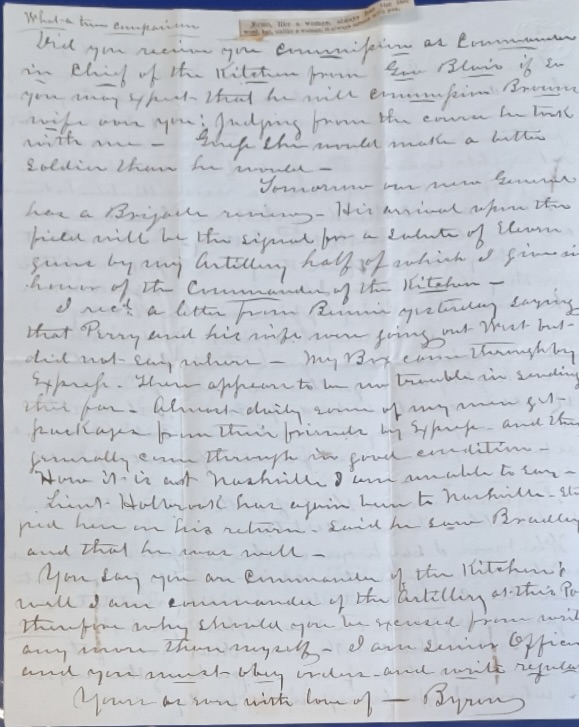 What a true comparison
News, like a woman, always
Did you receive you commission as Commander
in Chief of the Kitchen from Gov Blair if so
you may expect that he will commission Browns
wife over you; Judging from the course he took
with me — Guess she would make a better
soldier than he would —
Tomorrow our new General
has a Brigade review — His arrival upon the
field will be the signal for a salute of Eleven
guns by my Artillery half of which I give in
honor of the Commander of the Kitchen —
I recd a letter from Binnie yesterday saying
that Perry and his wife were going out West but
did not say where — My Box came through by
Express. There appears to be no trouble in sending
this far — Almost daily some of my men get
packages from their friends by Express and they
generally come through in good condition —
How it is at Nashville I am unable to say —
Lieut Holbrook has again been to Nashville
ped here on his return. Said he saw Bradley
and that he was well —
You say you are Commander of the Kitchen;
well I am commander of the Artillery at this Po
therefore why should you be excused from writ
any more than myself — I am senior Officer
and you must obey orders and write regular
Yours as ever with love of — Byron